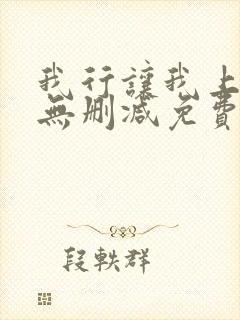 我行讓我上
無刪減免費
段軼群